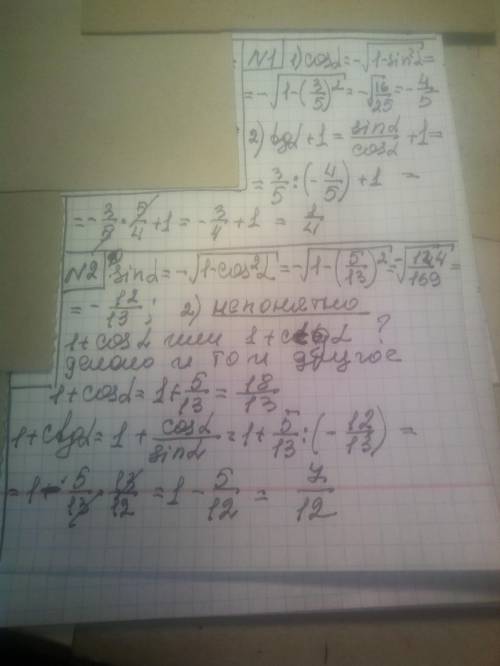 N1 1) cosα = -√(1-sin²α) =
= -√(1-(3/5)²) = -√(16/25) = -4/5
2) tgα + 1 = sinα/cosα + 1 =
= 3/5 : (-4/5) + 1 =
= -3/5 · 5/4 + 1 = -3/4 + 1 = 1/4
N2 sinα = -√(1-cos²α) = -√(1-(5/13)²) = -√(144/169) =
= -12/13; 2) непонятно
1+cosα или 1+ctgα ?
делаю и то и другое
1+cosα = 1+5/13 = 18/13
1+ctgα = 1 + cosα/sinα = 1+5/13 : (-12/13) =
= 1 - 5/13 · 13/12 = 1 - 5/12 = 7/12